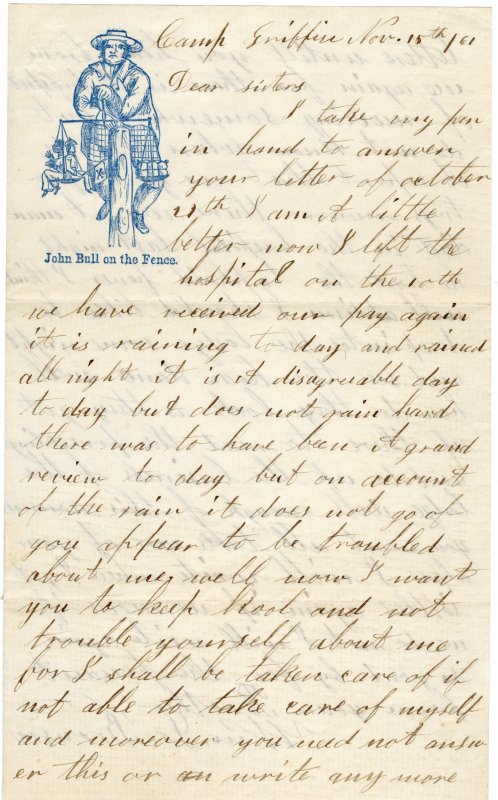 Camp Griffin Nov. 15th /61
Dear sisters
I take my pen
in hand to answer
your letter of october
27th I am A little
better now I left the
hospital on the 10th
John Bull on the Fence.
we have received our pay again
it is raining to day and rained
all night it is A disagreeable day
to day but does not rain hard
there was to have been A grand
review to day but on account
of the rain it does not go of
you appear to be troubled
about me, well now I want
you to keep Kool and not
trouble yourself about me
for I shall be taken care of if
not able to take care of myself
and moreover you need not answ
er this or write any more